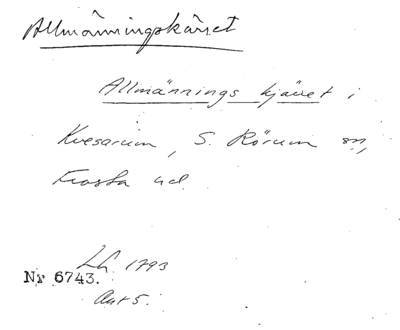 Allmänningskärret
Allmännings kjärret i
Kvesarum, S. Rörum sn,
Frosta hd
Lh 1793
Nr 6743.
Akt 5.